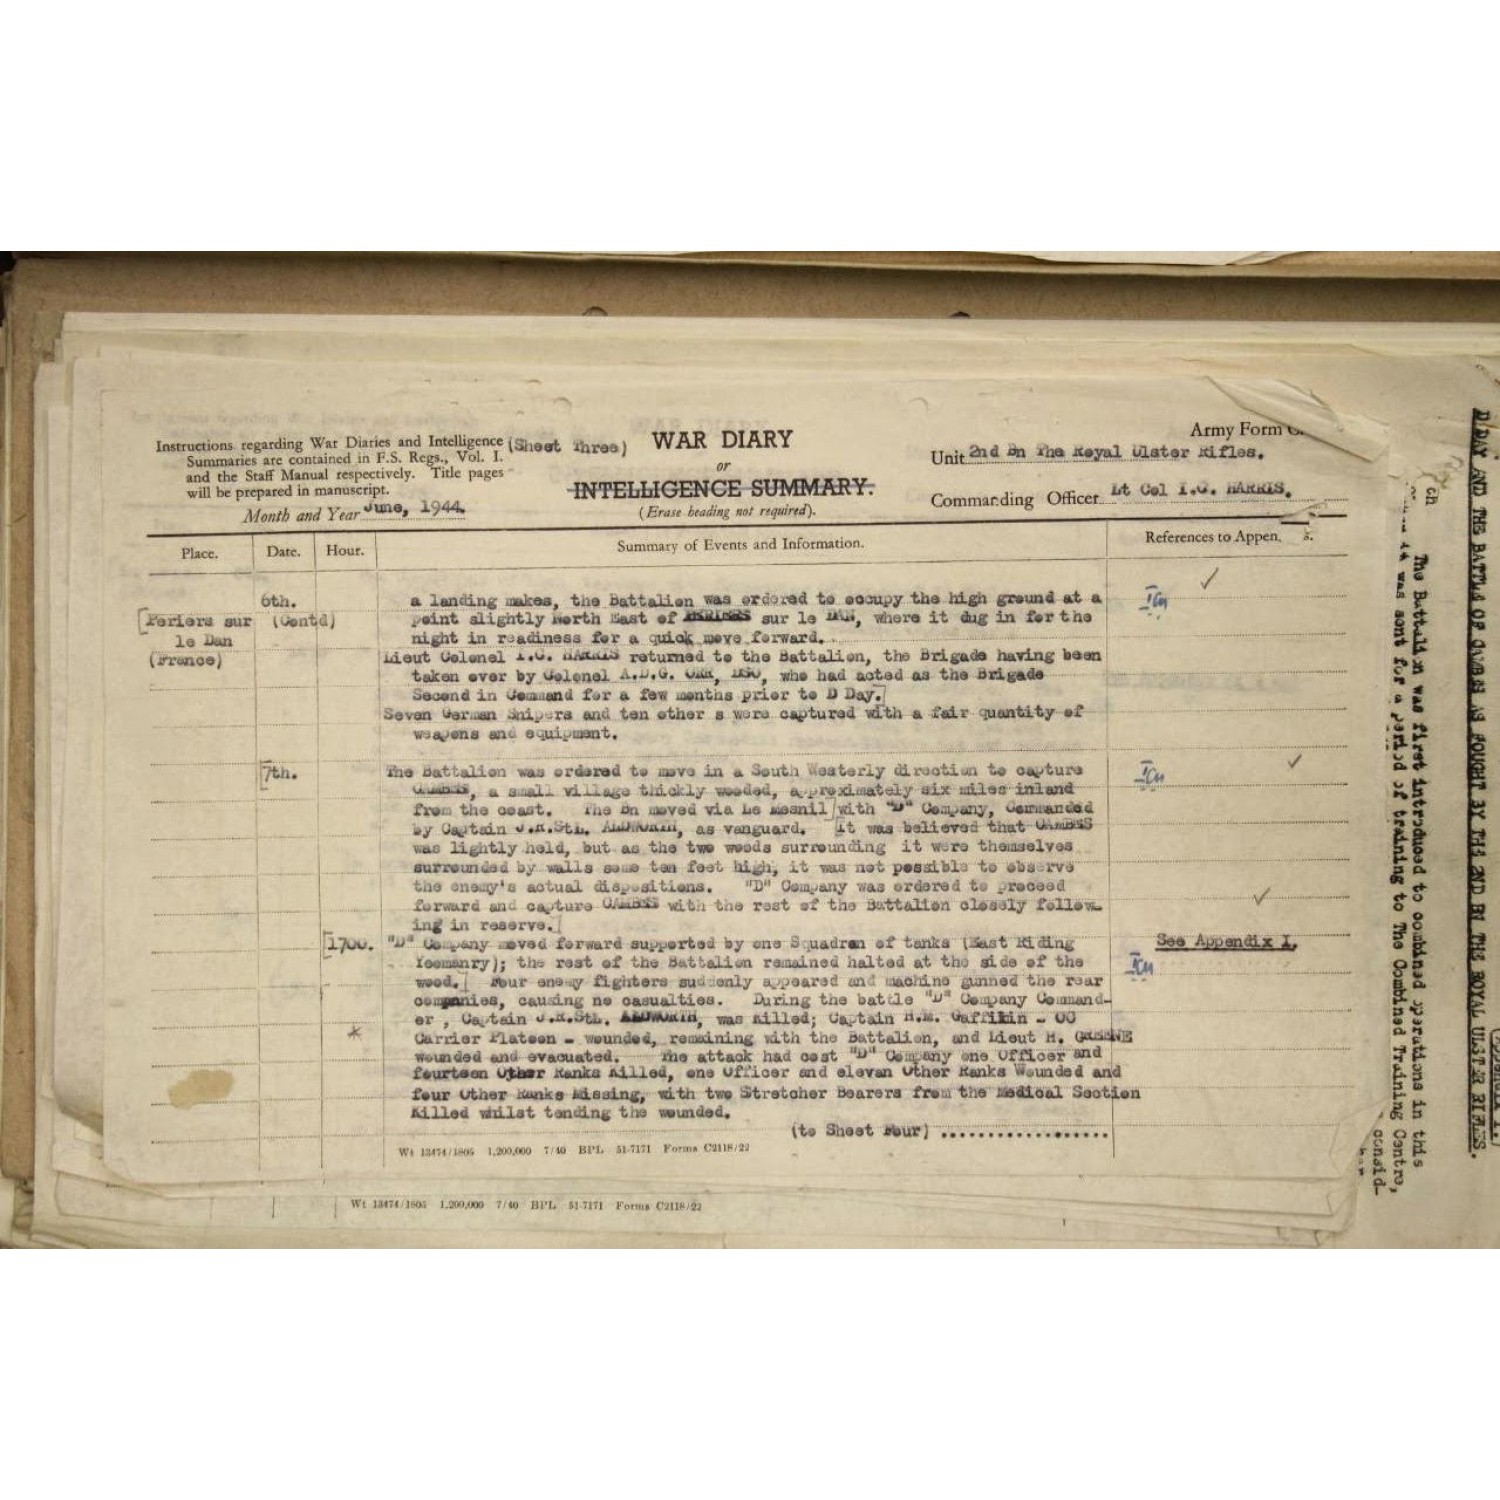 Instructions regarding War Diaries and Intelligence
Summaries are contained in F.S. Regs., Vol. I.
and the Staff Manual respectively. Title pages
will be prepared in manuscript.
Month and Year June, 1944.
(Sheet Three)
WAR DIARY
or
INTELLIGENCE SUMMARY.
(Erase heading not required).
Army Form
Unit 2nd Bn The Royal Ulster Rifles.
Commanding Officer Lt Col I.C. HARRIS.
Place. Date. Hour. Summary of Events and Information. References to Appen
[Periers sur
le Dan
(France)
6th.
(Contd)
a landing makes, the Battalion was ordered to occupy the high ground at a
point slightly North East of PERIERS sur le DAN, where it dug in for the
night in readiness for a quick move forward.
Lieut Colonel I.C. HARRIS returned to the Battalion, the Brigade having been
taken over by Colonel A.D.G. ORR, DSO, who had acted as the Brigade
Second in Command for a few months prior to D Day.]
Seven German Snipers and ten other s were captured with a fair quantity of
weapons and equipment.
[7th.
The Battalion was ordered to move in a South Westerly direction to capture
CAMBES, a small village thickly wooded, approximately six miles inland
from the coast. The Bn moved via Le Mesnil]with "D" Company, Commanded
by Captain J.R.StL. ALDWORTH, as vanguard. [It was believed that CAMBES
was lightly held, but as the two woods surrounding it were themselves
surrounded by walls some ten feet high, it was not possible to observe
the enemy's actual dispositions. "D" Company was ordered to proceed
forward and capture CAMBES with the rest of the Battalion closely follow-
ing in reserve.]
[1700. "D" Company moved forward supported by one Squadron of tanks (East Riding
Yeomanry); the rest of the Battalion remained halted at the side of the
wood.] Four enemy fighters suddenly appeared and machine gunned the rear
companies, causing no casualties. During the battle "D" Company Command-
er , Captain J.R.StL. ALDWORTH, was Killed; Captain H.M. Gaffikin - OC
Carrier Platoon - wounded, remaining with the Battalion, and Lieut H. GREENE
wounded and evacuated. The attack had cost "D" Company one Officer and
fourteen Other Ranks Killed, one Officer and elevan Other Ranks Wounded and
four Other Ranks Missing, with two Stretcher Bearers from the Medical Section
Killed whilst tending the wounded.
(to Sheet Four) ..................
See Appendix I.
Wt 13474/1805 1,200,000 7/40 BPL 51-7171 Forms C2118/22
Wt 13474/1805 1,200,000 7/40 BPL 51-7171 Forms C2118/22
D/DAY AND THE BATTLE OF CAMBES AS FOUGHT BY THE 2ND BN THE ROYAL ULSTER RIFLES.
The Battalion was first introduced to combined operations in this
it was sent for a period of training to The Combined Training Centre,
consid-